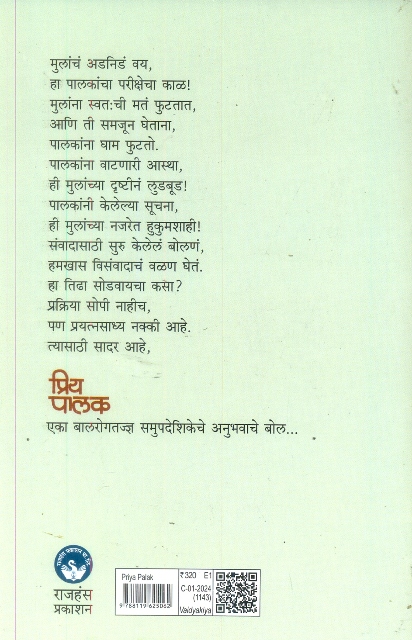 मुलांचं अडनिडं वय,
हा पालकांचा परीक्षेचा काळ!
मुलांना स्वतःची मतं फुटतात,
आणि ती समजून घेताना,
पालकांना घाम फुटतो.
पालकांना वाटणारी आस्था,
ही मुलांच्या दृष्टीनं लुडबूड!
पालकांनी केलेल्या सूचना,
ही मुलांच्या नजरेत हुकुमशाही!
संवादासाठी सुरु केलेलं बोलणं,
हमखास विसंवादाचं वळण घेतं.
हा तिढा सोडवायचा कसा?
प्रक्रिया सोपी नाहीच,
पण प्रयत्नसाध्य नक्की आहे.
त्यासाठी सादर आहे,
प्रिय
पालक
एका बालरोगतज्ज्ञ समुपदेशिकेचे अनुभवाचे बोल...
राजहंस
प्रकाशन
Priya Palak
9 788119 625062
₹320 E1
C-01-2024
(1143)
Vaidyakiya